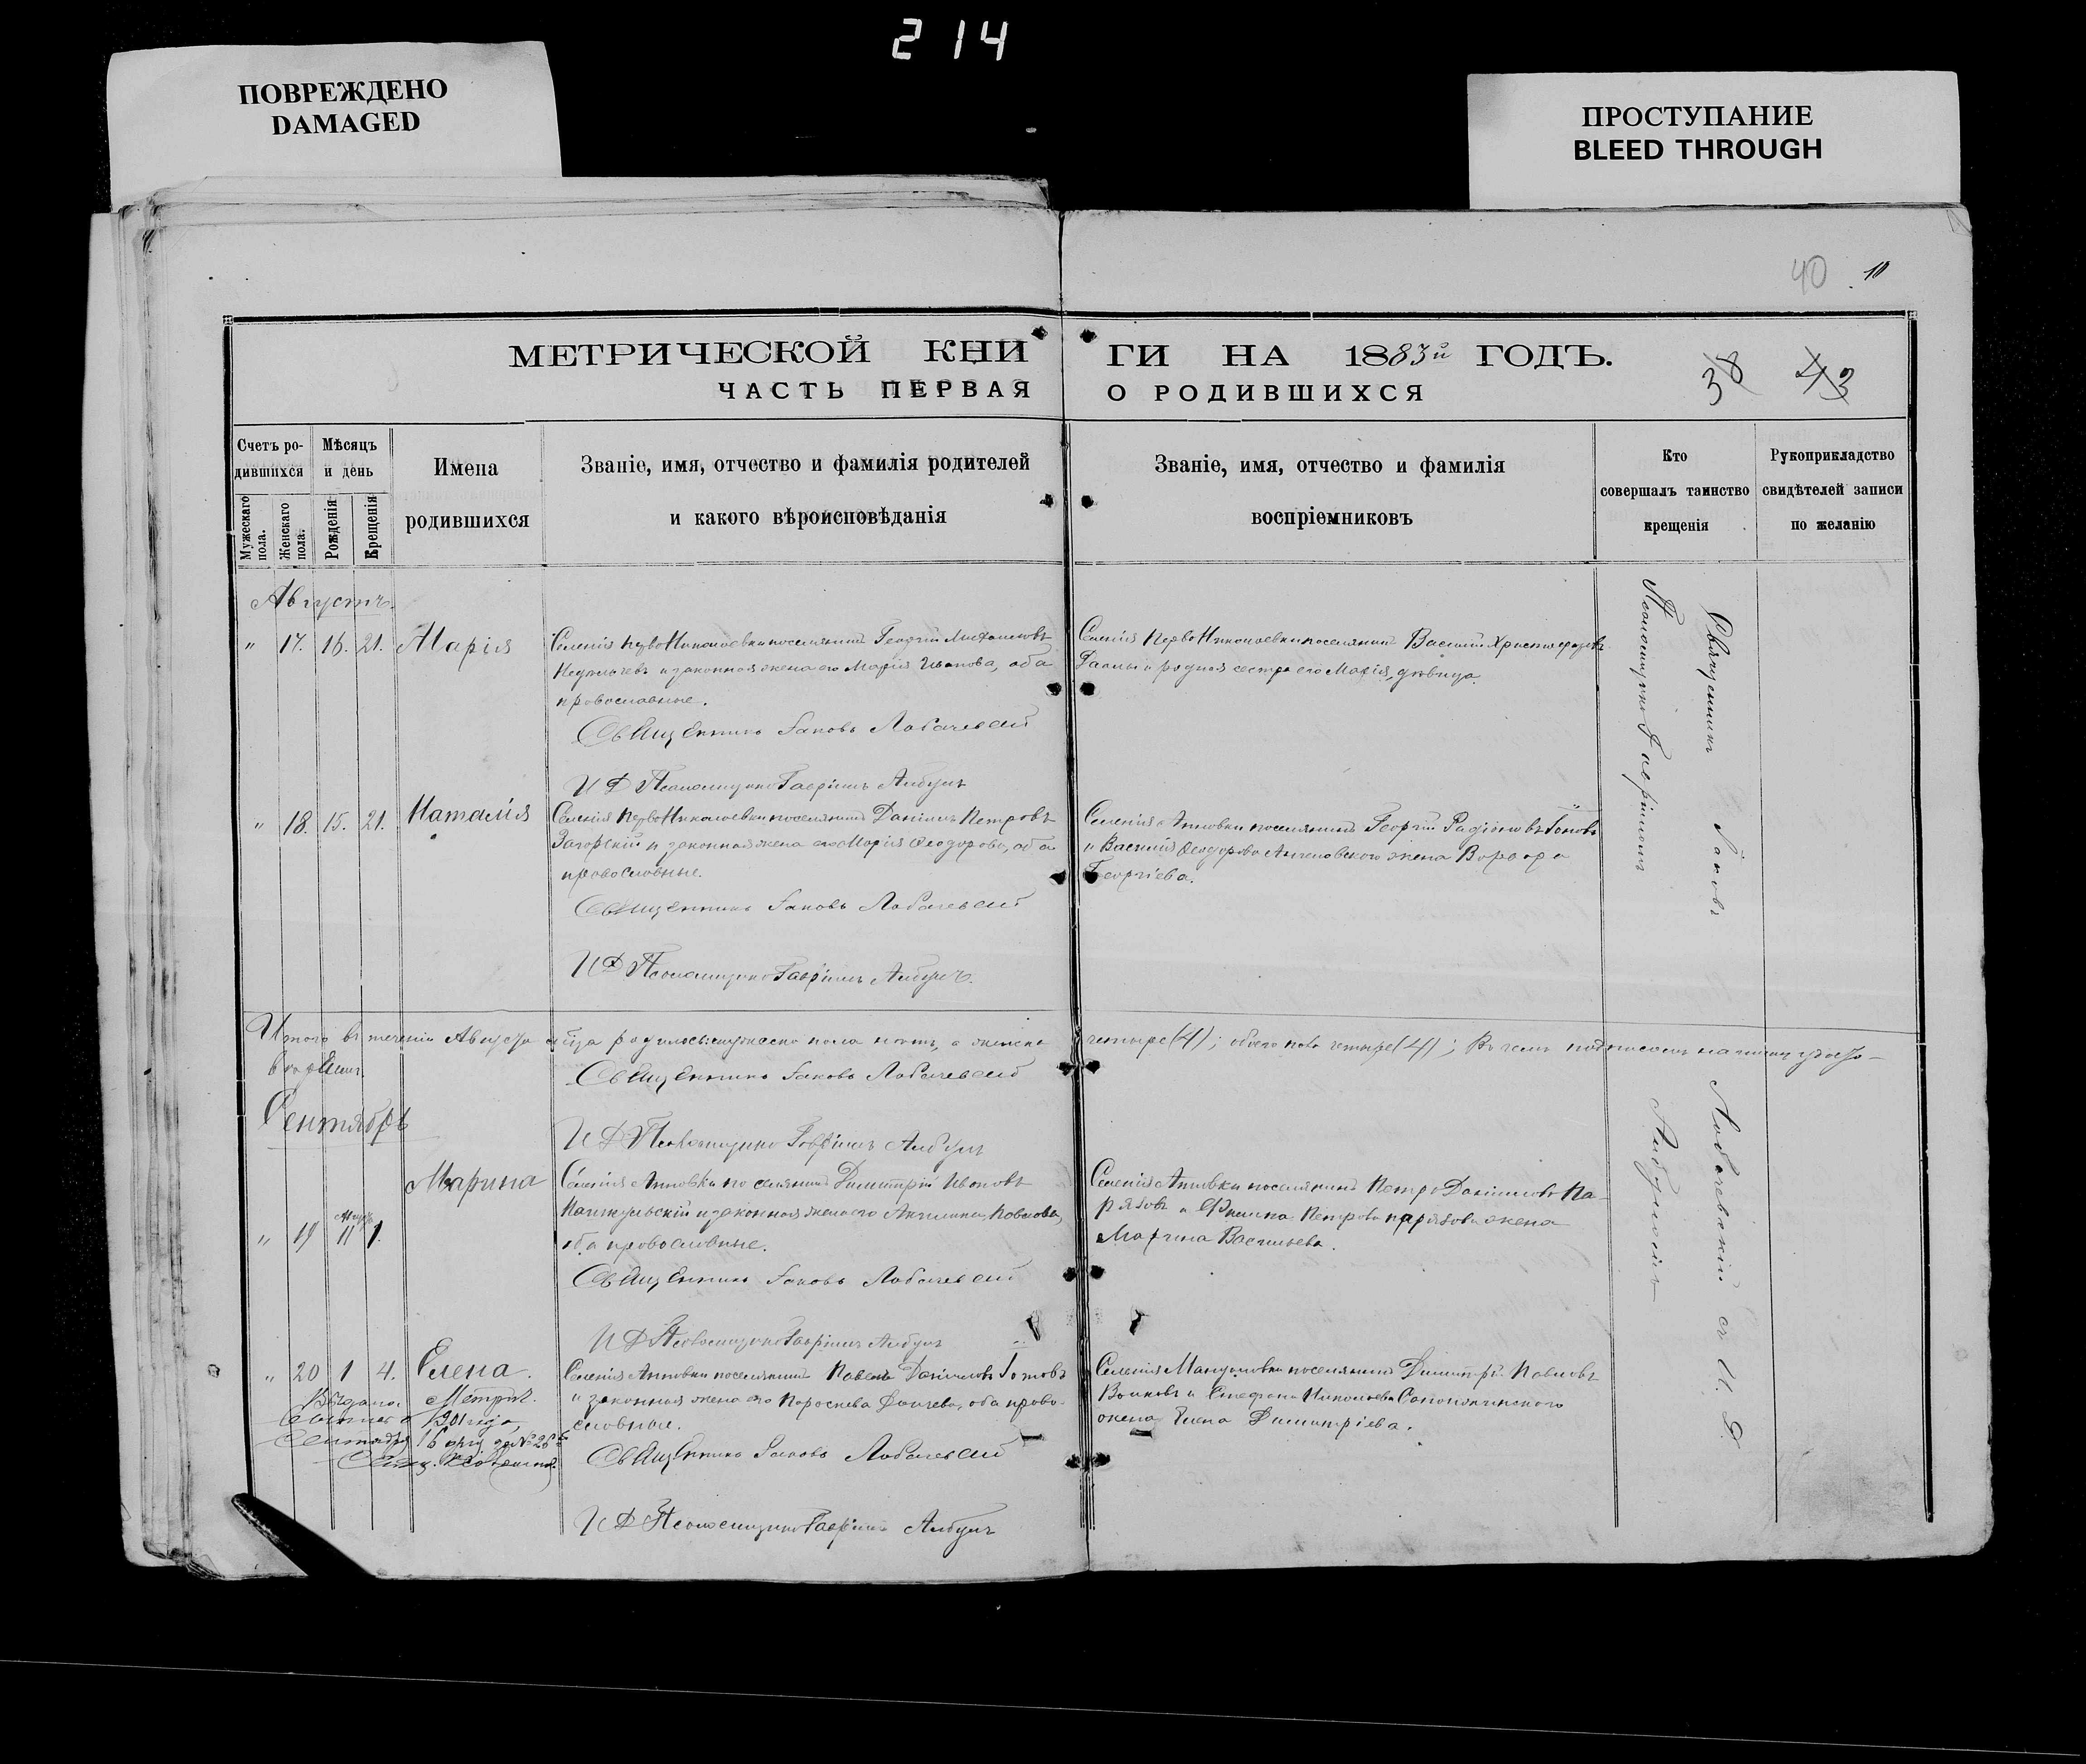 214
ПОВРЕЖДЕНО
DAMAGED
ПРОСТУПАНИЕ
BLEED THROUGH
40 11
МЕТРИЧЕСКОЙ КНИГИ НА 1883й ГОДЪ.
38 43
ЧАСТЬ ПЕРВАЯ О РОДИВШИХСЯ
Счетъ ро-
дившихся
Мужескаго пола.
Женскаго пола.
Мѣсяцъ
и день
Рожденія
Крещенія
Имена
родившихся
Званіе, имя, отчество и фамилія родителей
и какого вѣроисповѣданія
Званіе, имя, отчество и фамилія
воспріемниковъ
Кто
совершалъ таинство
крещенія
Рукоприкладство
свидѣтелей записи
по желанію
Августъ.
" 17. 16. 21. Марія
Селенія ПервоНиколаевки поселянинъ Георгій
и законная жена его Марія Иванова, оба
православные.
Священникъ Іаковъ Лобачевскій
И Д Псаломщика Гавріилъ Анбулъ
Селенія ПервоНиколаевки поселянинъ Василій Христофоровъ
и родная сестра его Марія, дѣвица.
" 18. 15. 21. Наталія
Селенія ПервоНиколаевки поселянинъ Даніилъ Петровъ
Загорскій и законная жена его Марія Ѳеодорова, оба
православные.
Священникъ Іаковъ Лобачевскій
И Д Псаломщика Гавріилъ Анбулъ.
Селенія Анновки поселянинъ Георгій Радіоновъ
и Василія Ѳеодорова жена Варвара
Георгіева.
Итого въ теченіи Августа м-ца родилось: мужеска пола нѣтъ, а женска четыре (4); обоего пола четыре (4); Въ чемъ подписомъ нашимъ удосто-
вѣряемъ.
Священникъ Іаковъ Лобачевскій
И Д Псаломщика Гавріилъ Анбулъ
Сентябрь
Марина
" 19 11 1.
Селенія Анновки поселянинъ Димитрій Ивановъ
и законная жена его Ангелина Павлова,
оба православные.
Священникъ Іаковъ Лобачевскій
И Д Псаломщика Гавріилъ Анбулъ
Селенія Анновки поселянинъ Петръ Даніиловъ Па-
рязовъ и Филипа Петрова Парязова жена
Марина Васильева.
" 20 1 4. Елена.
Выдана Метрич.
1901 года,
Сентября 16
Селенія Анновки поселянинъ Павелъ Даніиловъ
и законная жена его Параскева оба право-
славные.
Священникъ Іаковъ Лобачевскій
И Д Псаломщика Гавріилъ Анбулъ
Селенія поселянинъ Димитрій Павловъ
Вълковъ и Стефана Николаева
жена Елена Димитріева.
Священникъ Іаковъ Лобачевскій съ И. Д.
Псаломщика Гавріиломъ Анбуломъ